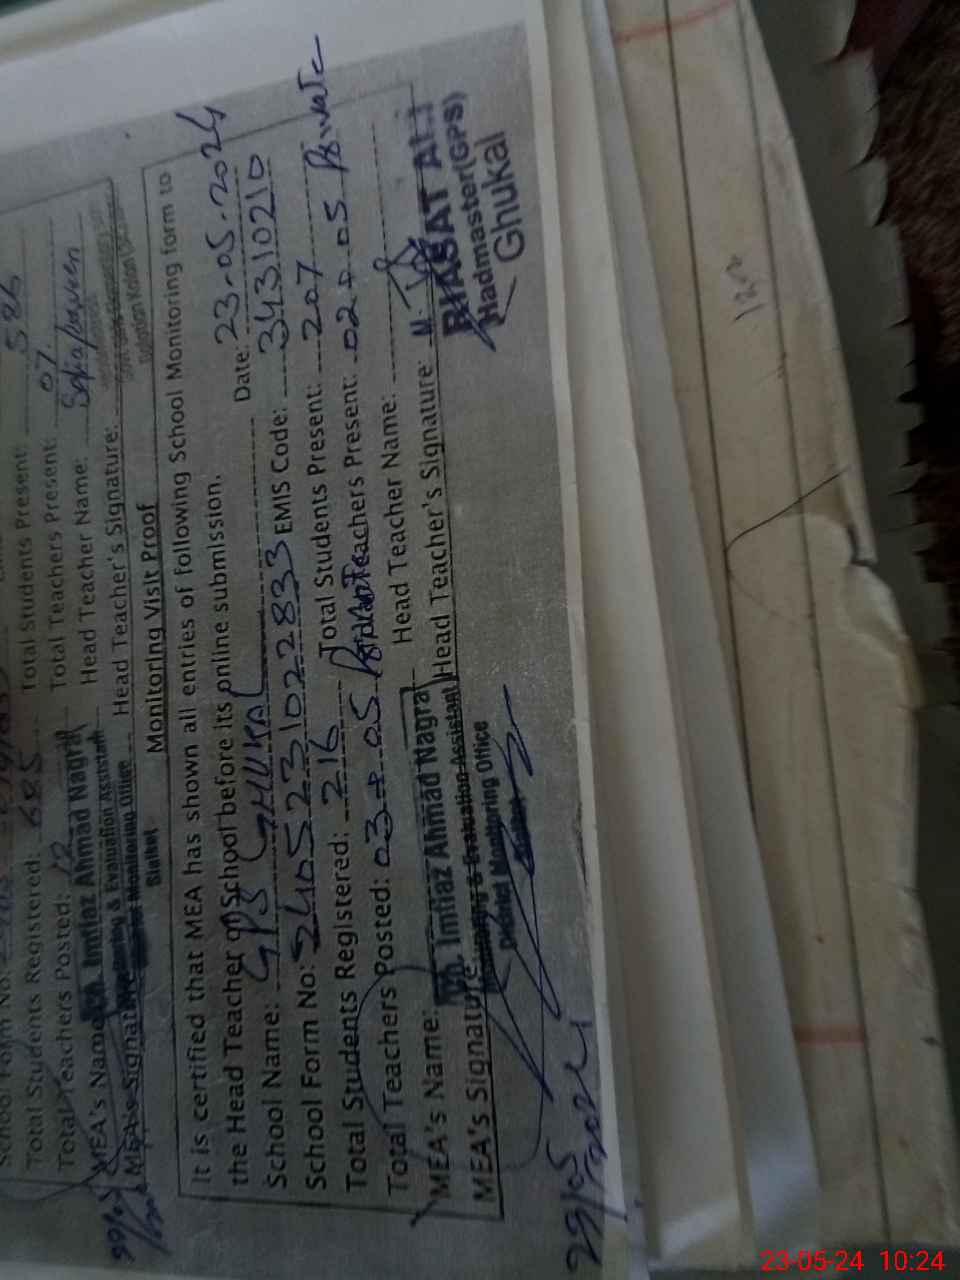 Total Students Registered: 685 Total Students Present: 586
Total Teachers Posted: 12 Total Teachers Present: 07
MEA's Name: Imtiaz Ahmad Nagra Head Teacher Name:
Monitoring & Evaluation Assistant
MEA's Signature: District Monitoring Office Head Teacher's Signature:
Sialkot
Monitoring Visit Proof
It is certified that MEA has shown all entries of following School Monitoring form to
the Head Teacher of School before its online submission.
School Name: GPS GHUKAL Date: 23-05-2024
School Form No: 2405231022833 EMIS Code: 34310210
Total Students Registered: 216 Total Students Present: 207
Total Teachers Posted: 03+05 Private Teachers Present: 02+05 Private
MEA's Name: Imtiaz Ahmad Nagra Head Teacher Name:
Monitoring & Evaluation Assistant
MEA's Signature: Head Teacher's Signature:
District Monitoring Office
RIASAT ALI
Hadmaster(GPS)
Ghukal
23-05-24 10:24